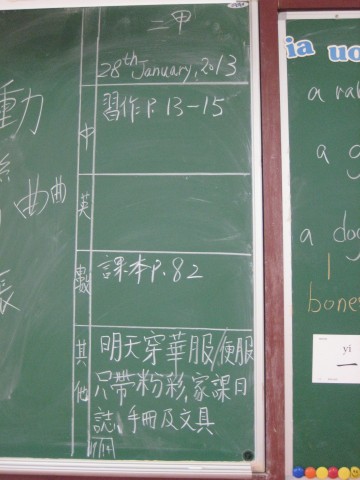 二甲
28th January, 2013
中
習作P. 13-15
英
數
課本P. 82
其他
明天穿華服/便服
只帶粉彩,家課日
誌、手冊及文具
動
曲曲
ia uo
a rab
a g
a dog
bone
yi
一